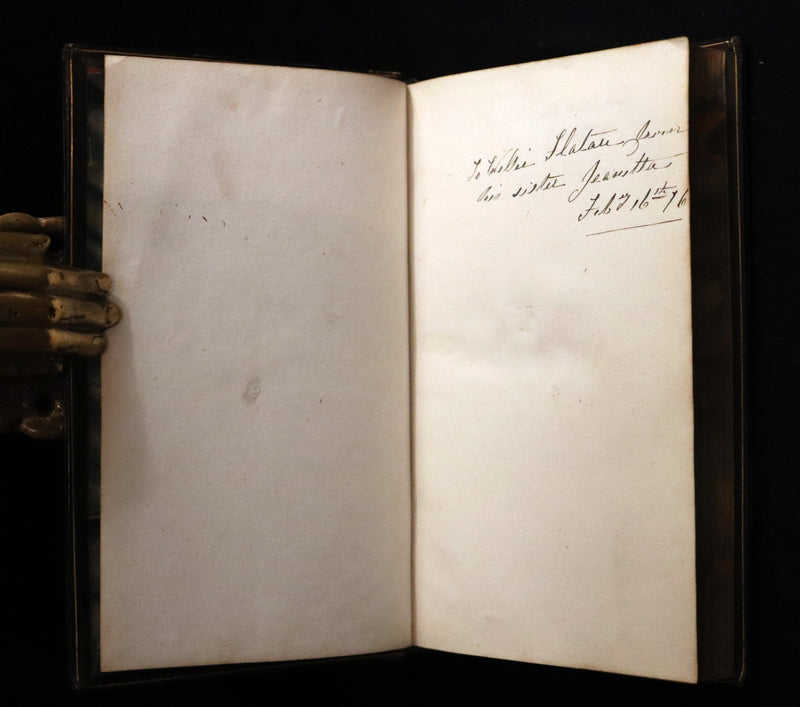 To Willie Flatau, from
his sister Jeanetta
Feby 16th 76